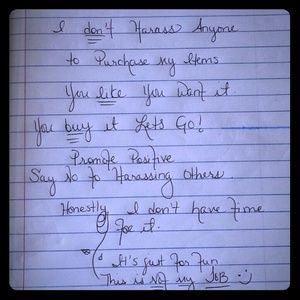 I don't Harass Anyone
to Purchase my Items
You like You Want it
You buy it Lets Go!
Promote Positive
Say No To Harassing Others.
Honestly I don't have Time
For it.
It's just For Fun
This is Not my JOB :)